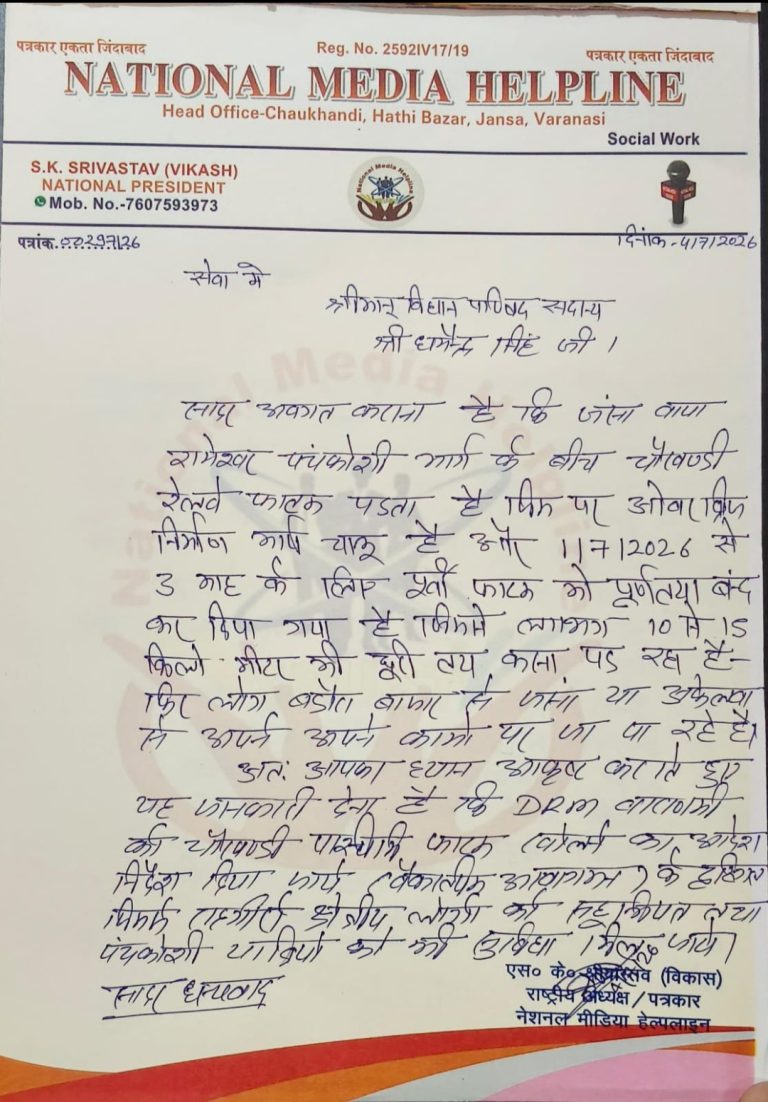 पत्रकार एकता जिंदाबाद
Reg. No. 2592IV17/19
पत्रकार एकता जिंदाबाद
NATIONAL MEDIA HELPLINE
Head Office-Chaukhandi, Hathi Bazar, Jansa, Varanasi
Social Work
S.K. SRIVASTAV (VIKASH)
NATIONAL PRESIDENT
Mob. No.-7607593973
National Media Helpline
पत्रांक.00297/26
दिनांक-4/7/2026
सेवा मे
श्रीमान् विधान परिषद सदस्य
श्री धर्मेन्द्र सिंह जी।
सादर अवगत कराना है कि जंसा वाया
रामेश्वर पंचकोशी मार्ग के बीच चौखण्डी
रेलवे फाटक पडता है जिस पर ओवर ब्रिज
निर्माण कार्य चालू है और 1/7/2026 से
3 माह के लिए पूर्वी फाटक को पूर्णतया बंद
कर दिया गया है जिससे लगभग 10 से 15
किलो मीटर की दूरी तय करना पड रहा है-
फिर लोग बाजार से जंसा या
से अपने अपने कार्यो पर जा पा रहे है।
अतः आपका ध्यान आकृष्ट कराते हुए
यह जानकारी देना है कि DRM वाराणसी
को चौखण्डी पश्चिमी फाटक खोलने का आदेश
निर्देश दिया जाये (वैकल्पिक आवागमन) के दृष्टिगत
जिससे राहगीरो क्षेत्रीय लोगो को सहूलियत तथा
पंचकोशी यात्रियो को भी सुविधा मिल जाये।
सादर धन्यवाद
एस० के० श्रीवास्तव (विकास)
राष्ट्रीय अध्यक्ष/पत्रकार
नेशनल मीडिया हेल्पलाइन